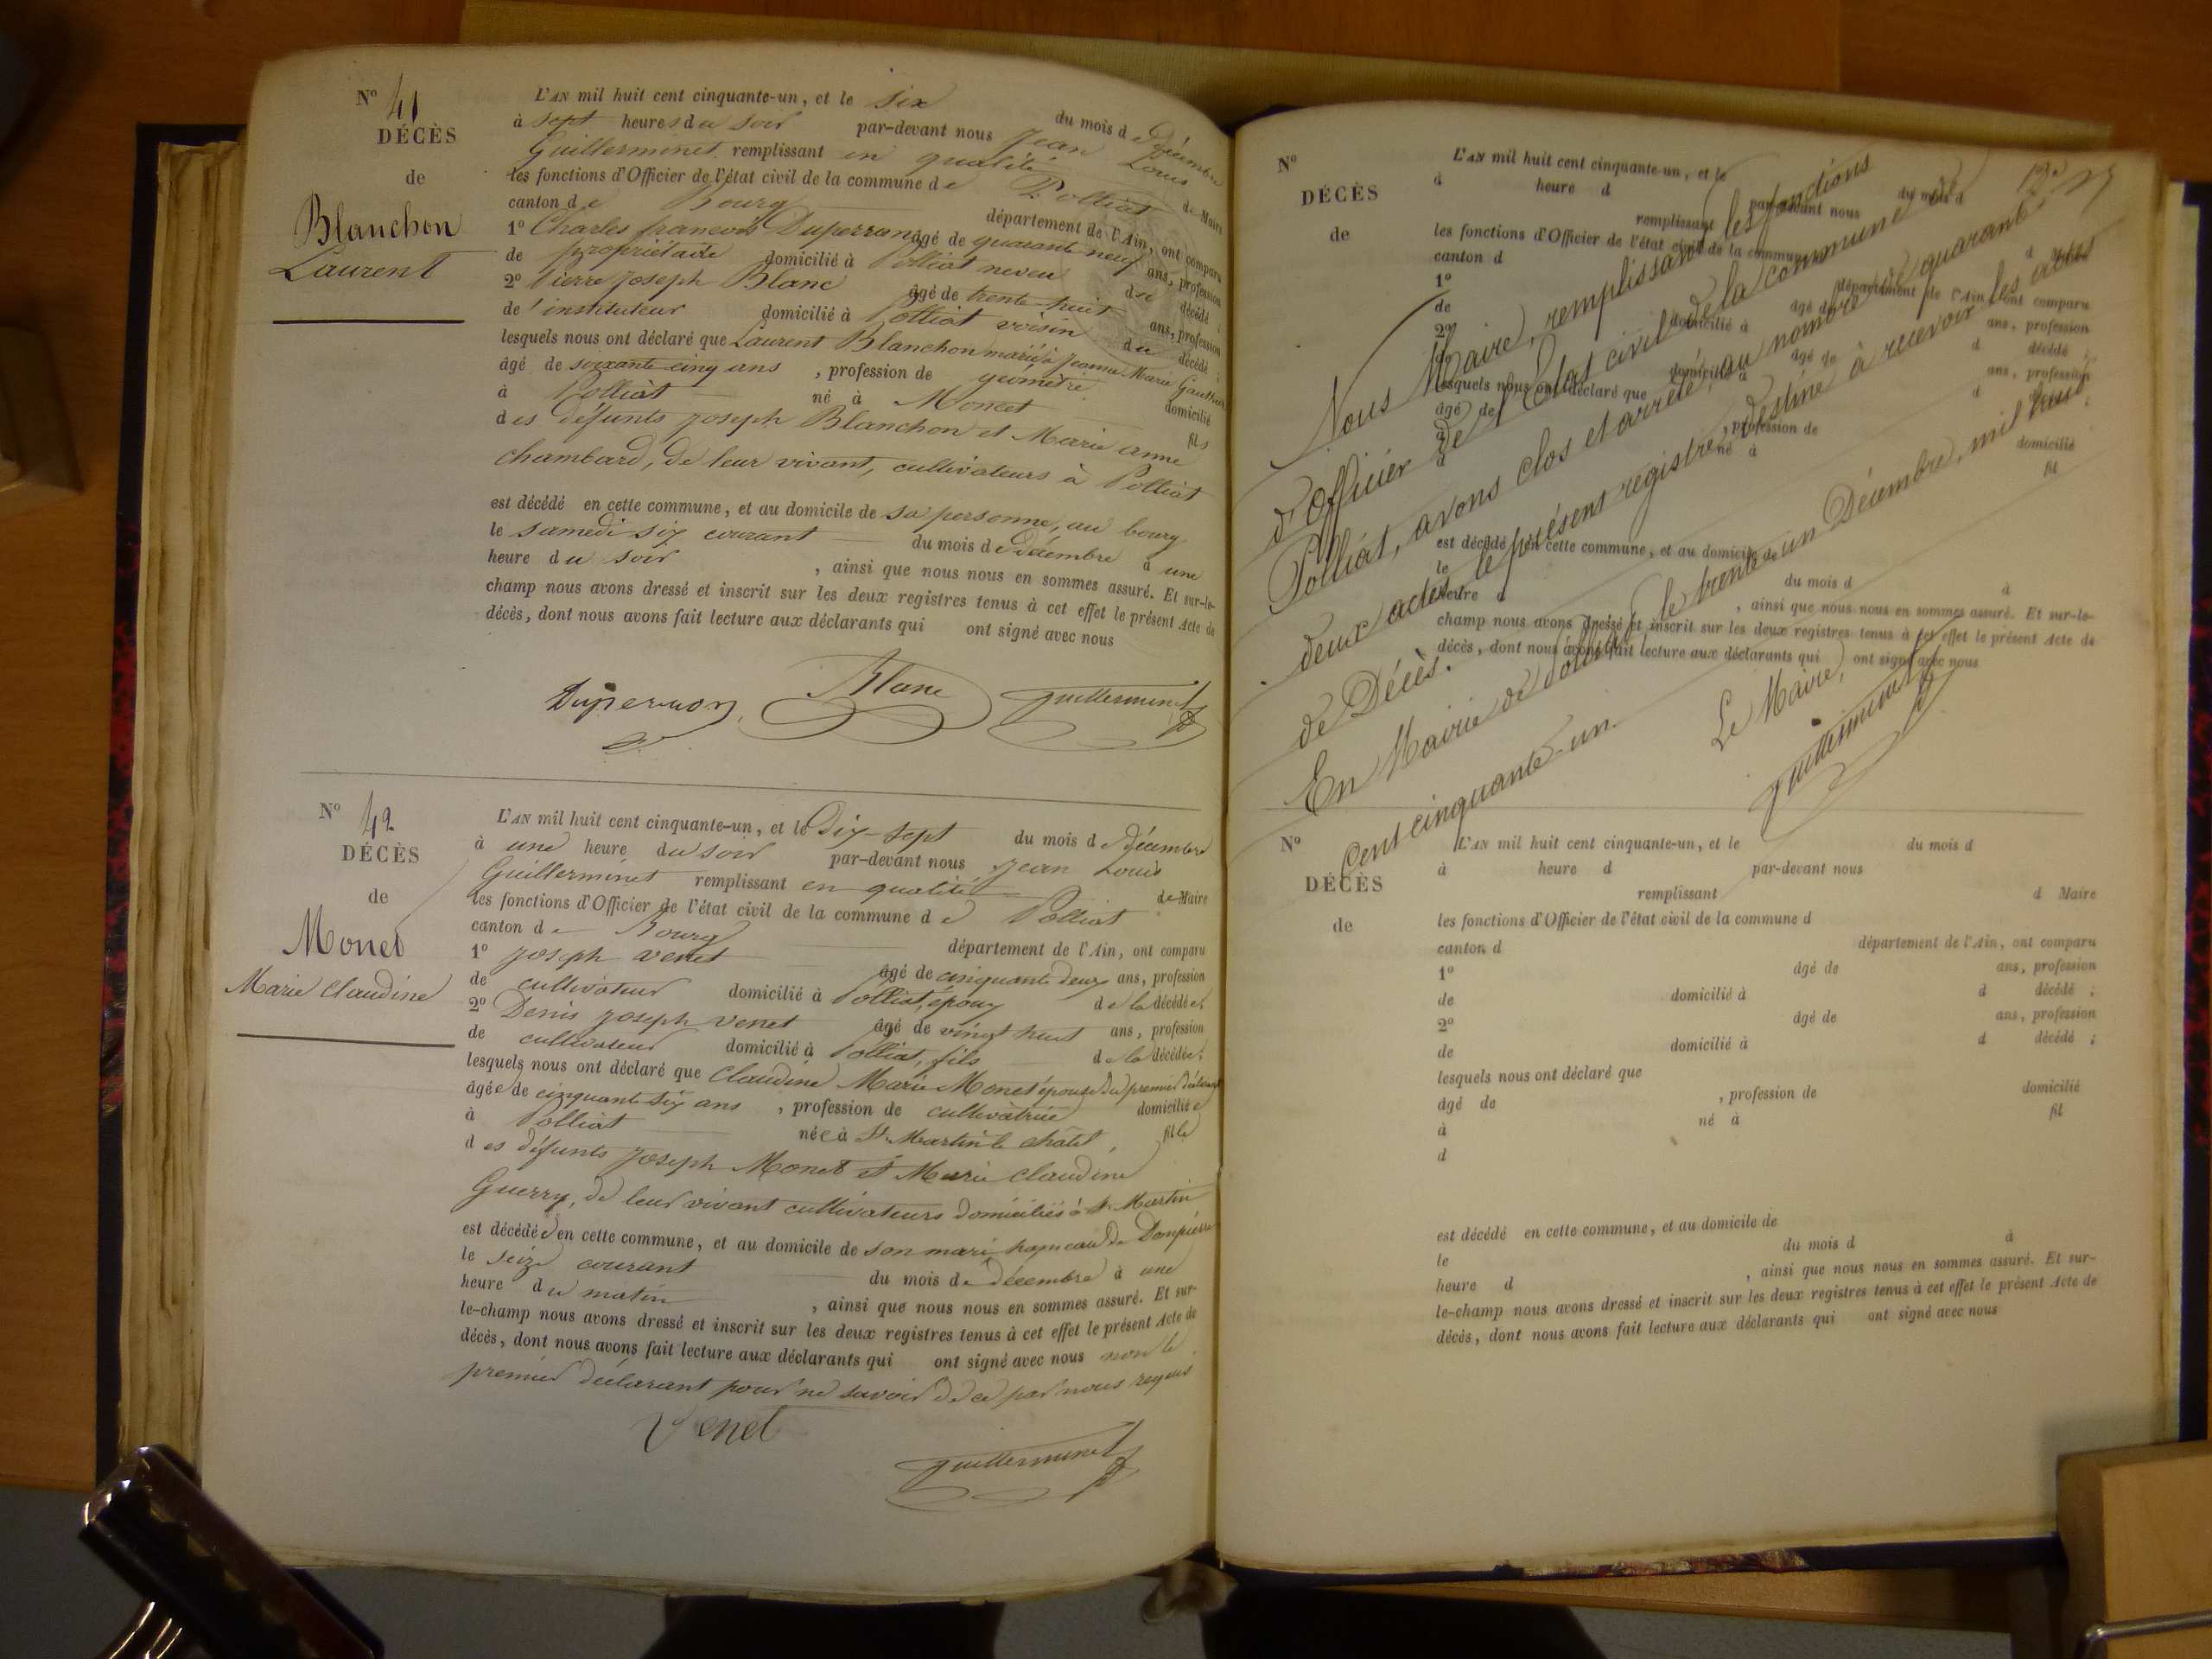 N° 41
DÉCÈS
de
Blanchon
Laurent
L'AN mil huit cent cinquante-un, et le six du mois de Décembre
à sept heures du soir par-devant nous Jean Louis
Guillerminet remplissant en qualité de Maire
les fonctions d'Officier de l'état civil de la commune de Polliat
canton de Bourg département de l'Ain, ont comparu
1° Charles françois Duperron âgé de quarante neuf ans, profession
de propriétaire domicilié à Polliat neveu du décédé ;
2° Pierre Joseph Blanc âgé de trente-huit ans, profession
de l'instituteur domicilié à Polliat voisin du décédé ;
lesquels nous ont déclaré que Laurent Blanchon marié à Jeanne Marie Gauthier
âgé de soixante cinq ans , profession de géomètre domicilié
à Polliat né à Moncet fils
des défunts Joseph Blanchon et Marie anne
Chambard, de leur vivant, cultivateurs à Polliat
est décédé en cette commune, et au domicile de sa personne, au bourg
le samedi six courant du mois de Décembre à une
heure du soir , ainsi que nous nous en sommes assuré. Et sur-le-
champ nous avons dressé et inscrit sur les deux registres tenus à cet effet le présent Acte de
décès, dont nous avons fait lecture aux déclarants qui ont signé avec nous
Duperron Blanc Guillerminet
N° 42
DÉCÈS
de
Monet
Marie Claudine
L'AN mil huit cent cinquante-un, et le Dix-sept du mois de Décembre
à une heure du soir par-devant nous Jean Louis
Guillerminet remplissant en qualité de Maire
les fonctions d'Officier de l'état civil de la commune de Polliat
canton de Bourg département de l'Ain, ont comparu
1° Joseph Venet âgé de cinquante deux ans, profession
de cultivateur domicilié à Polliat, époux de la décédée ;
2° Denis Joseph Venet âgé de vingt huit ans, profession
de cultivateur domicilié à Polliat, fils de la décédée ;
lesquels nous ont déclaré que Claudine Marie Monet épouse du premier déclarant
âgée de cinquante six ans , profession de cultivatrice domiciliée
à Polliat née à St Martin le châtel, fille
des défunts Joseph Monet et Marie Claudine
Guerry, de leur vivant cultivateurs domiciliés à St Martin
est décédée en cette commune, et au domicile de son mari, hameau de Dompierre
le seize courant du mois de décembre à une
heure du matin , ainsi que nous nous en sommes assuré. Et sur-
le-champ nous avons dressé et inscrit sur les deux registres tenus à cet effet le présent Acte de
décès, dont nous avons fait lecture aux déclarants qui ont signé avec nous non le
premier déclarant pour ne savoir de ce par nous requis
Venet
Guillerminet
N°
DÉCÈS
de
L'AN mil huit cent cinquante-un, et le du mois d
à heure d par-devant nous
remplissant
les fonctions d'Officier de l'état civil de la commune d
canton d département de l'Ain, ont comparu
1° âgé de ans, profession
de domicilié à d décédé ;
2° âgé de ans, profession
de domicilié à d
lesquels nous ont déclaré que
âgé de , profession de domicilié
à né à fil
d
est décédé en cette commune, et au domicile de
le du mois d à
heure d , ainsi que nous nous en sommes assuré. Et sur-le-
champ nous avons dressé et inscrit sur les deux registres tenus à cet effet le présent Acte de
décès, dont nous avons fait lecture aux déclarants qui ont signé avec nous
Nous Maire, remplissant les fonctions
d'Officier de l'État civil de la commune de
Polliat, avons clos et arrêté, au nombre de quarante-
deux actes le présent registre, destiné à recevoir les actes
de Décès.
En Mairie de Polliat, le trente-un Décembre, mil huit
cent cinquante-un.
Le Maire,
Guillerminet
N°
DÉCÈS
de
L'AN mil huit cent cinquante-un, et le du mois d
à heure d par-devant nous
remplissant d Maire
les fonctions d'Officier de l'état civil de la commune d
canton d département de l'Ain, ont comparu
1° âgé de ans, profession
de domicilié à d décédé ;
2° âgé de ans, profession
de domicilié à d décédé ;
lesquels nous ont déclaré que
âgé de , profession de domicilié
à né à fil
d
est décédé en cette commune, et au domicile de
le du mois d à
heure d , ainsi que nous nous en sommes assuré. Et sur-
le-champ nous avons dressé et inscrit sur les deux registres tenus à cet effet le présent Acte de
décès, dont nous avons fait lecture aux déclarants qui ont signé avec nous